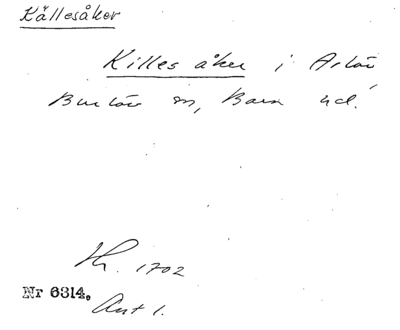 Källesåker
Killes åker i Arlöv
Burlöv sn, Bara hd.
Kh. 1702
Nr 6314.
Ant 1.